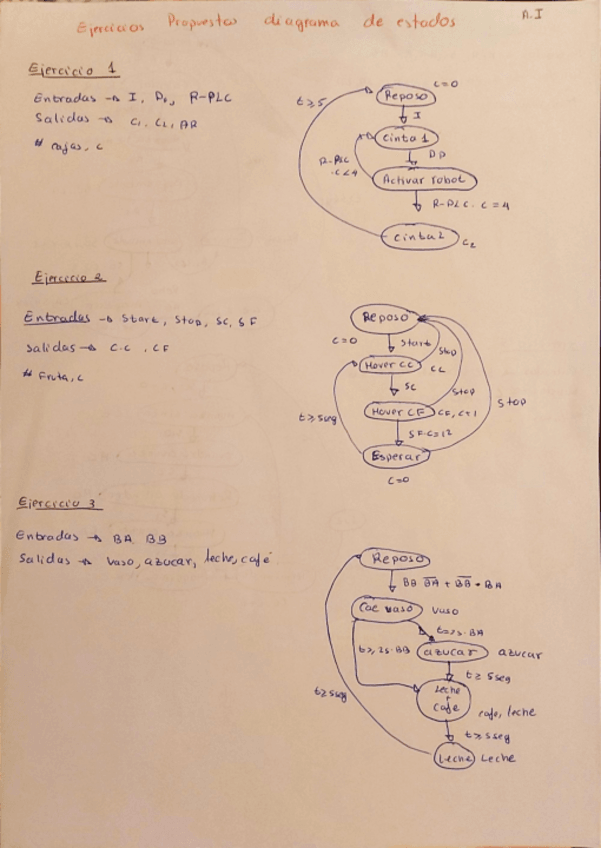 Ejercicios Propuestos diagrama de estados
A.I
Ejercicio 1
Entradas → I, Dp, R-PLC
Salidas → C1, C2, AR
# cajas, c
Reposo
c=0
t≥5
I
cinta 1
DP
R-PLC
·c<4
Activar robot
R-PLC· c=4
cinta2
C2
Ejercicio 2
Entradas → Start, Stop, SC, SF
Salidas → C.C , CF
# Fruta, c
Reposo
c=0
Start
Stop
Mover CC
CC
SC
Stop
Mover CF
CF, c+1
Stop
t≥5seg
SF·c=12
Esperar
c=0
Ejercicio 3
Entradas → BA, BB
Salidas → Vaso, azucar, leche, café
Reposo
BB B̅A̅ + B̅B̅ · BA
Cae vaso
Vaso
t≥2s·BA
t≥2s·BB
azucar
azucar
t≥5seg
t≥5seg
Leche
Cafe
cafe, leche
t≥5seg
Leche
Leche